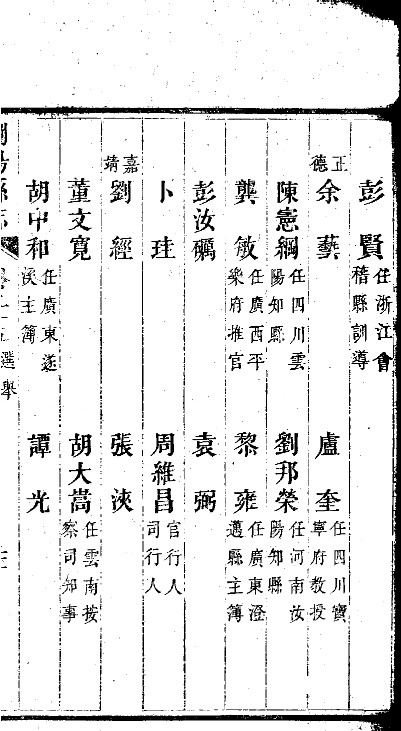 彭賢 任浙江會稽縣訓導
正德 余藝 盧奎 任四川寶寧府教授
陳憲綱 任四川雲陽知縣 劉邦榮 任河南汝陽知縣
龔敏 任廣西平樂府推官 黎雍 任廣東澄邁縣主簿
彭汝礪 袁弼
卜珪 周維昌 官行人司行人
嘉靖 劉經 張浹
董文寬 胡大嵩 任雲南按察司知事
胡中和 任廣東遂溪主簿 譚光
選舉